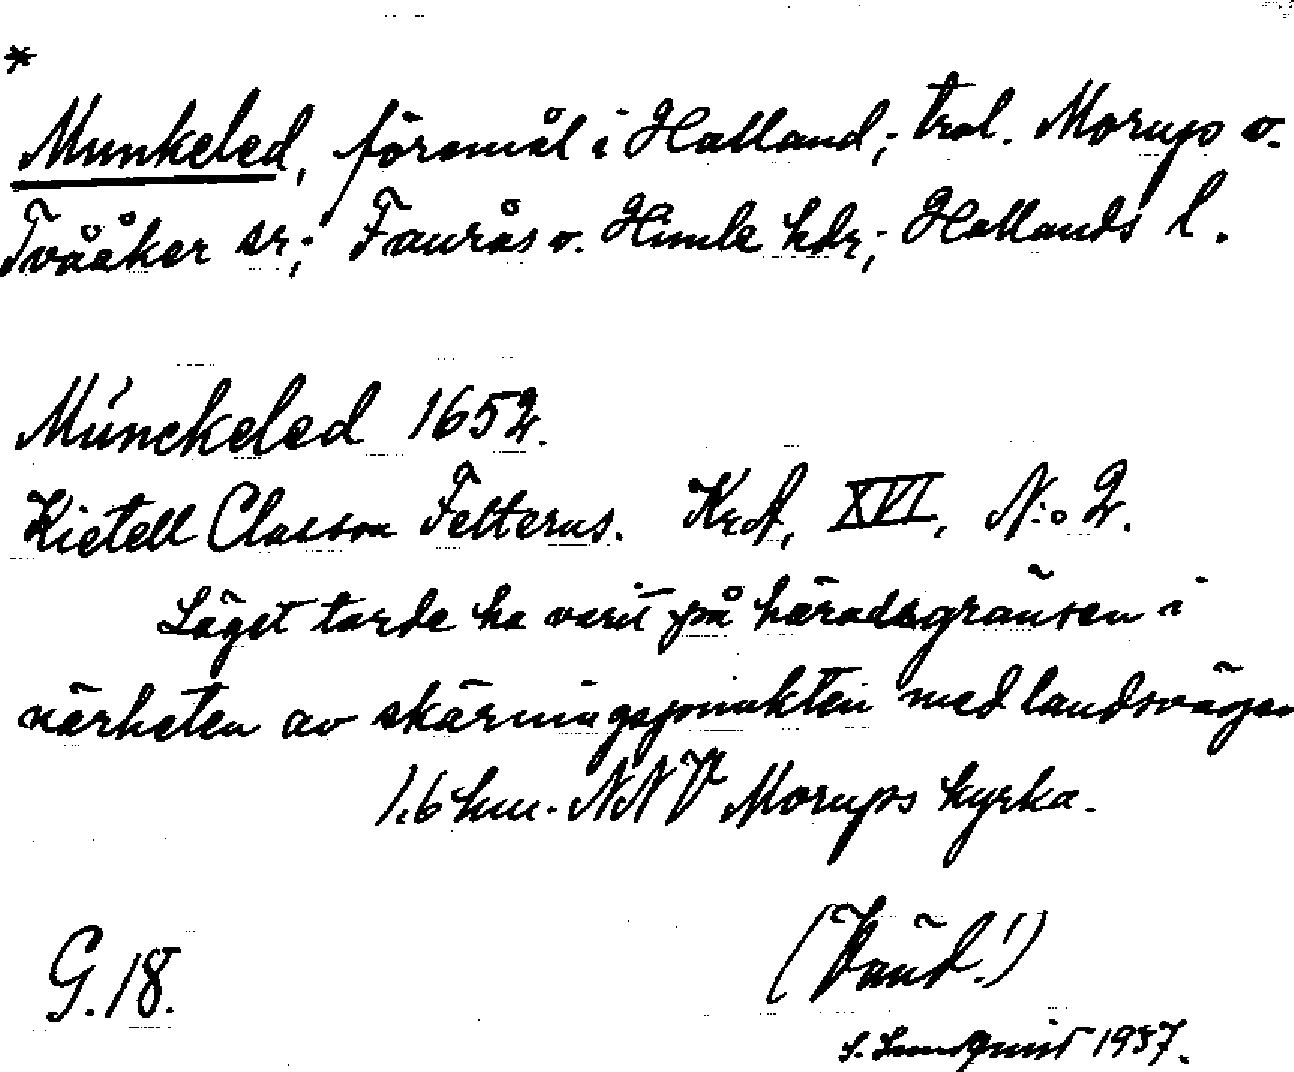 *
Munkeled, föremål i Halland; trol. Morups o.
Tvååker sr; Faurås o. Himle hdr; Hallands l.
Münckeled 1652.
Kietell Classon Felterus. KrA, XVI, N:o 2.
Läget torde ha varit på häradsgränsen i
närheten av skärningspunkten med landsvägen
1.6 km. NNV Morups kyrka.
G. 18.
(Vänd!)
S. Lundquist 1937.